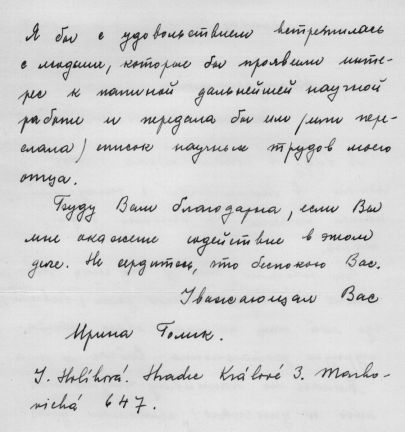 Я бы с удовольствием встретилась
с людьми, которые бы проявили инте-
рес к папиной дальнейшей научной
работе и передала бы им (или пере-
слала) список научных трудов моего
отца.
Буду Вам благодарна, если Вы
мне окажете содействие в этом
деле. Не сердитесь, что беспокою Вас.
Уважающая Вас
Ирина Голик.
I. Holíková. Hradec Králové 3. Marko-
vická 647.